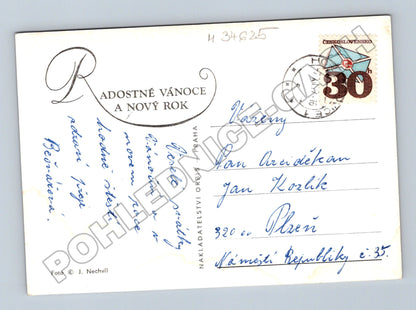 M 34625
ČESKOSLOVENSKO
30 h
RADOSTNÉ VÁNOCE
A NOVÝ ROK
Veselé svátky
vánoční a v
novém roce
hodně štěstí
zdraví přeje
Bednářová.
Foto © J. Nechvíl
NAKLADATELSTVÍ ORBIS PRAHA
Vážený
Pan Arciděkan
Jan Kozlík
Plzeň
320 00
Náměstí Republiky č. 35.
POHLEDNICE.CZ